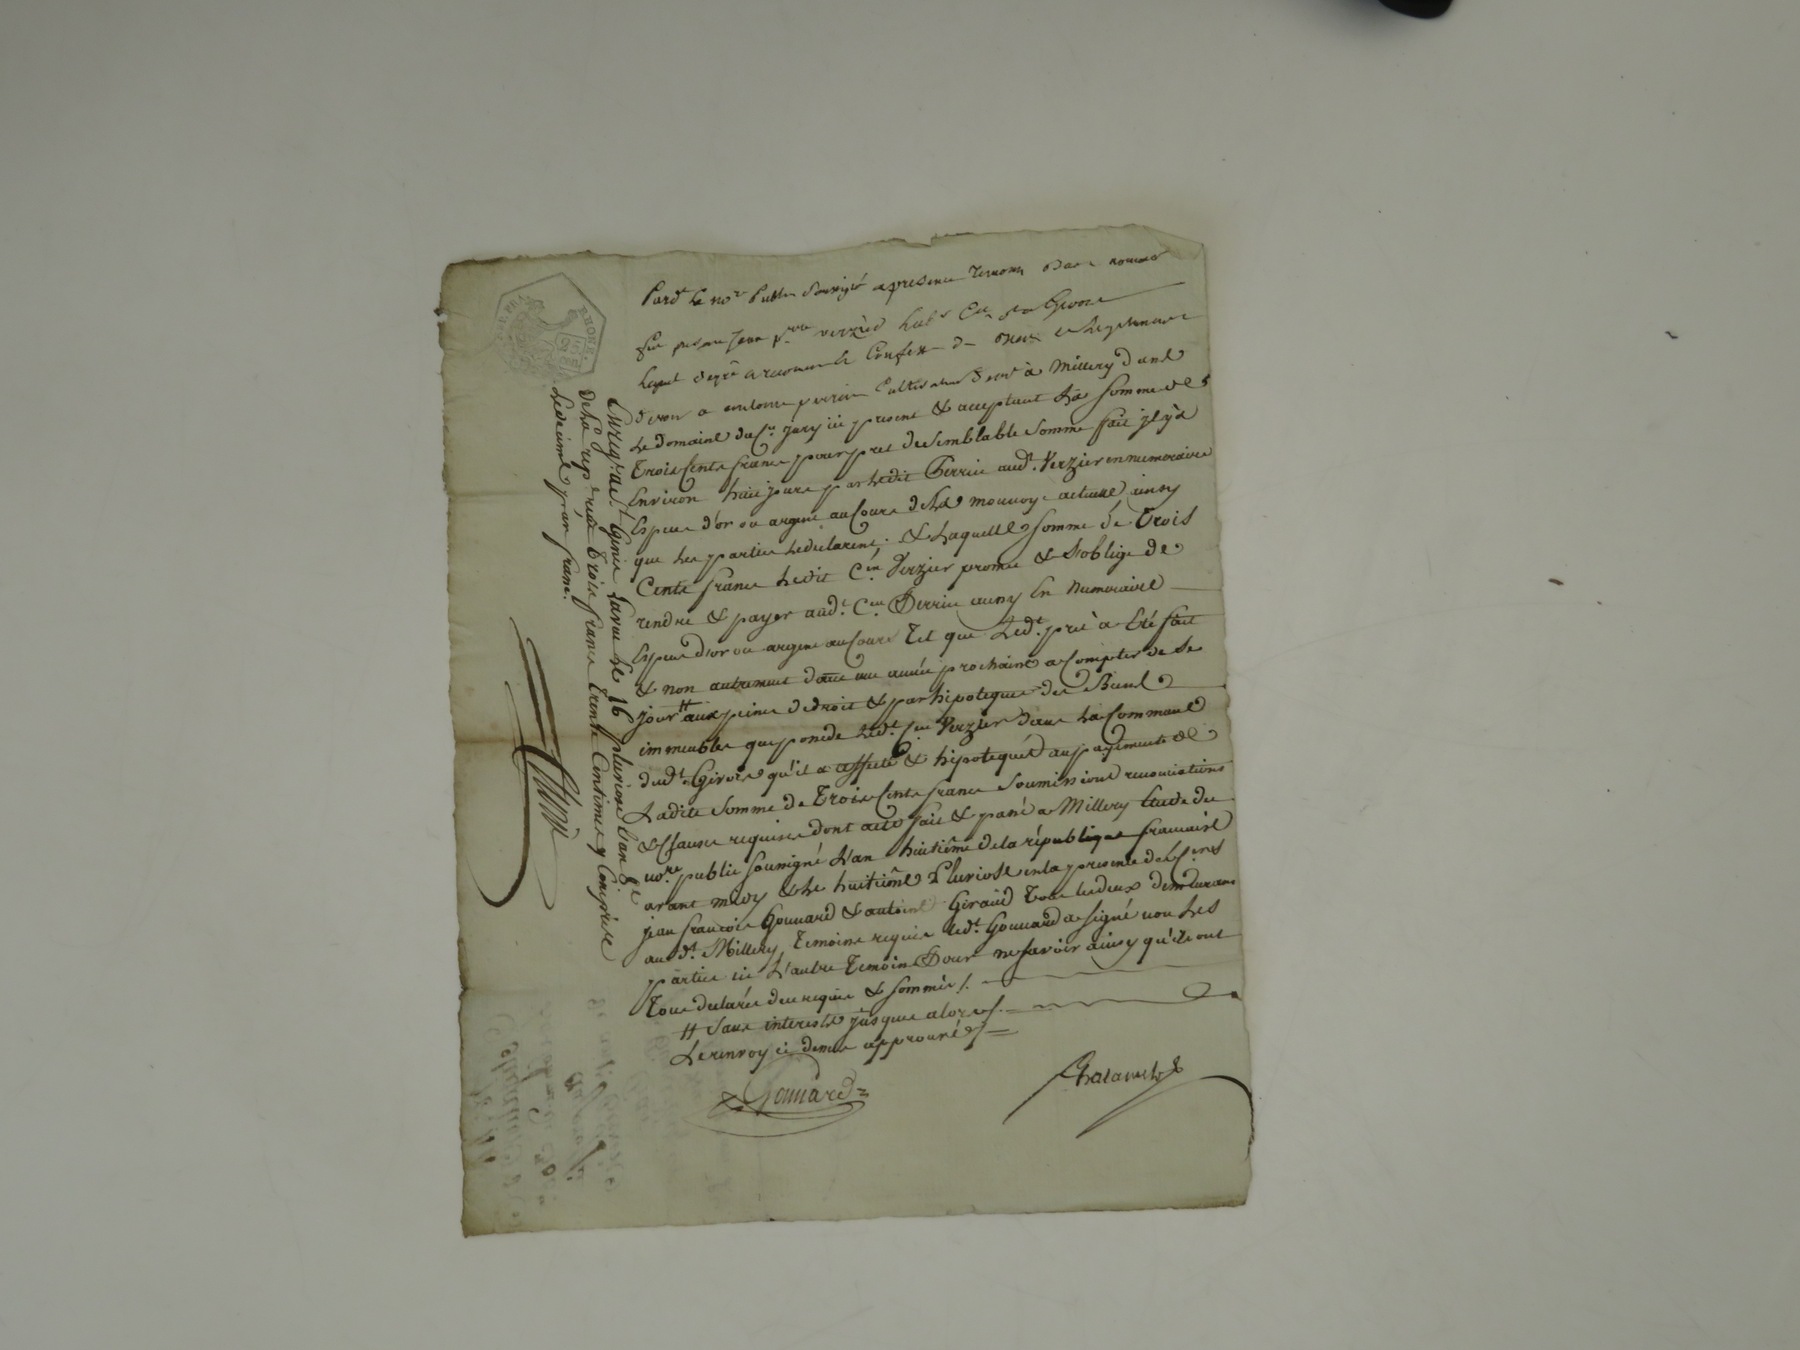 Pard.t le no.re Public soussigné et presence temoins bas nommés
fut present Jean p.rre verzier hab.t
Lequel de gré a reconnu & Confessé devoir
devoir a antoine perrin Cultivateur dem.t à Millery dans
Le domaine du C.n jary ici present & acceptant La somme de
Trois Cents francs pour pret de semblable somme fait jl y a
Environ huit jours par Ledit Perrin aud.t Verzier en numeraire
Especes d'or ou argent au Cours de La monnoye actuelle ainsy
que Les parties Le declarent; & Laquelle somme de Trois
Cents francs Ledit C.en Verzier promet & s'oblige de
rendre & payer aud.t C.en Perrin aussy En Numeraire
Especes d'or ou argent au Cours Tel que Led.t prêt à Eté fait
& non autrement dans une année prochaine a Compter de Ce
jour # aux peines de droit & par hipoteque des Biens
immeubles que possede Led.t C.en Verzier dans La Commune
dud.t Givors qu'il a affecté & hipotequé au payement de
Ladite Somme de Trois Cents francs Soumissions renonciations
& Clauses requises dont acte fait & passé a Millery Etude du
no.re public soussigné L'an huitième de la république francaise
avant midy & Le huitième Pluviose en la presence des C.ens
jean francois Gonnard & antoine Giraud Tous Les deux demeurans
aud.t Millery, Temoins requis Led.t Gonnard a signé non Les
parties ni L'autre Temoin Pour ne savoir ainsy qu'ils ont
Tous declaré de ce requis & sommés /.
# Sans interests jusques alors /.
Le renvoy ci dessus approuvé /.
Gonnard
Enreg.ré a S.t Genis Laval Le 16 pluviose L'an 8.e
reçu Trois francs Trente Centimes y Compris
Le decime p.r franc.
RHONE
25
CEN